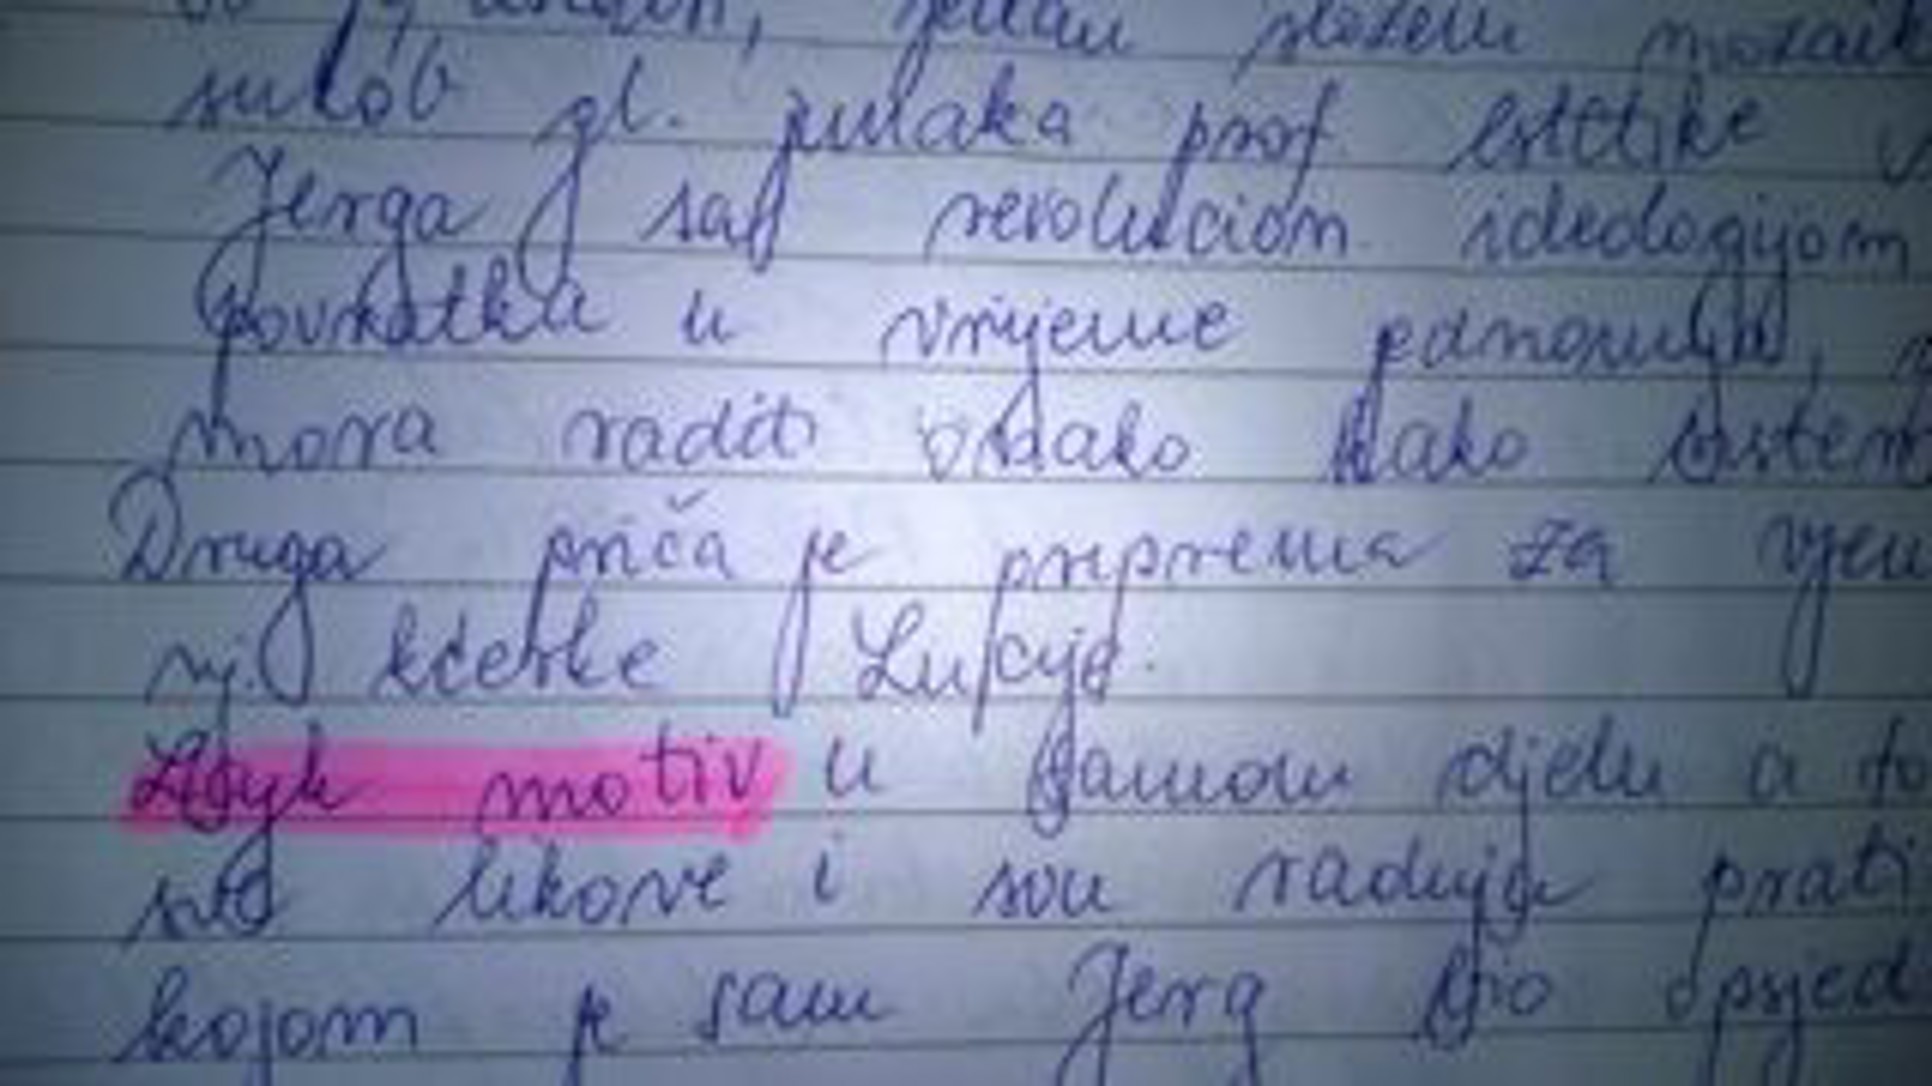 jedan složeni mozaik
sukob gl. junaka prof estetike
Jerga sa revolucion. ideologijom
povratka u vrijeme jednoumlja,
mora raditi onako kako sistem
Druga priča je priprema za vjen
nj. kćerke Lucije.
Lajk motiv u samom djelu a to
sve likove i svu radnju prati
kojom je sam Jerg bio opsjed